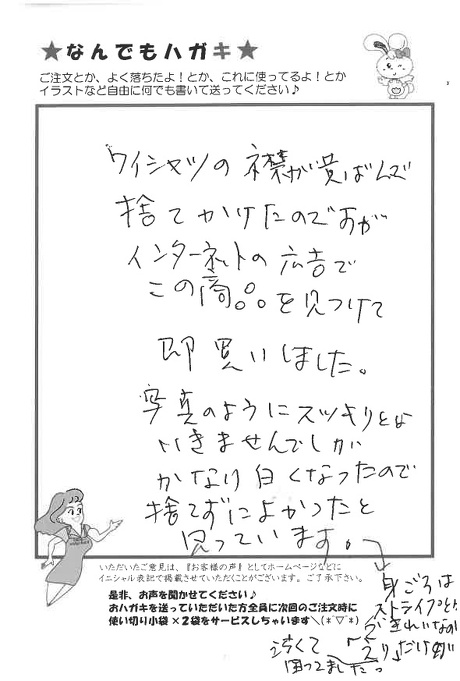 ★なんでもハガキ★
ご注文とか、よく落ちたよ！とか、これに使ってるよ！とか
イラストなど自由に何でも書いて送ってください♪
ワイシャツの襟が黄ばんで
捨てかけたのですが
インターネットの広告で
この商品を見つけて
即買いしました。
写真のようにスッキリとは
いきませんでしたが
かなり白くなったので
捨てずによかったと
思っています。
身ごろは
ストライプとか
きれいなのに
「えり」だけが
汚くて
困ってました。
いただいたご意見は、『お客様の声』としてホームページなどに
イニシャル表記で掲載させていただくことがございます。ご了承下さい。
是非、お声を聞かせてください♪
おハガキを送っていただいた方全員に次回のご注文時に
使い切り小袋×2袋をサービスしちゃいます＼(*^▽^*)